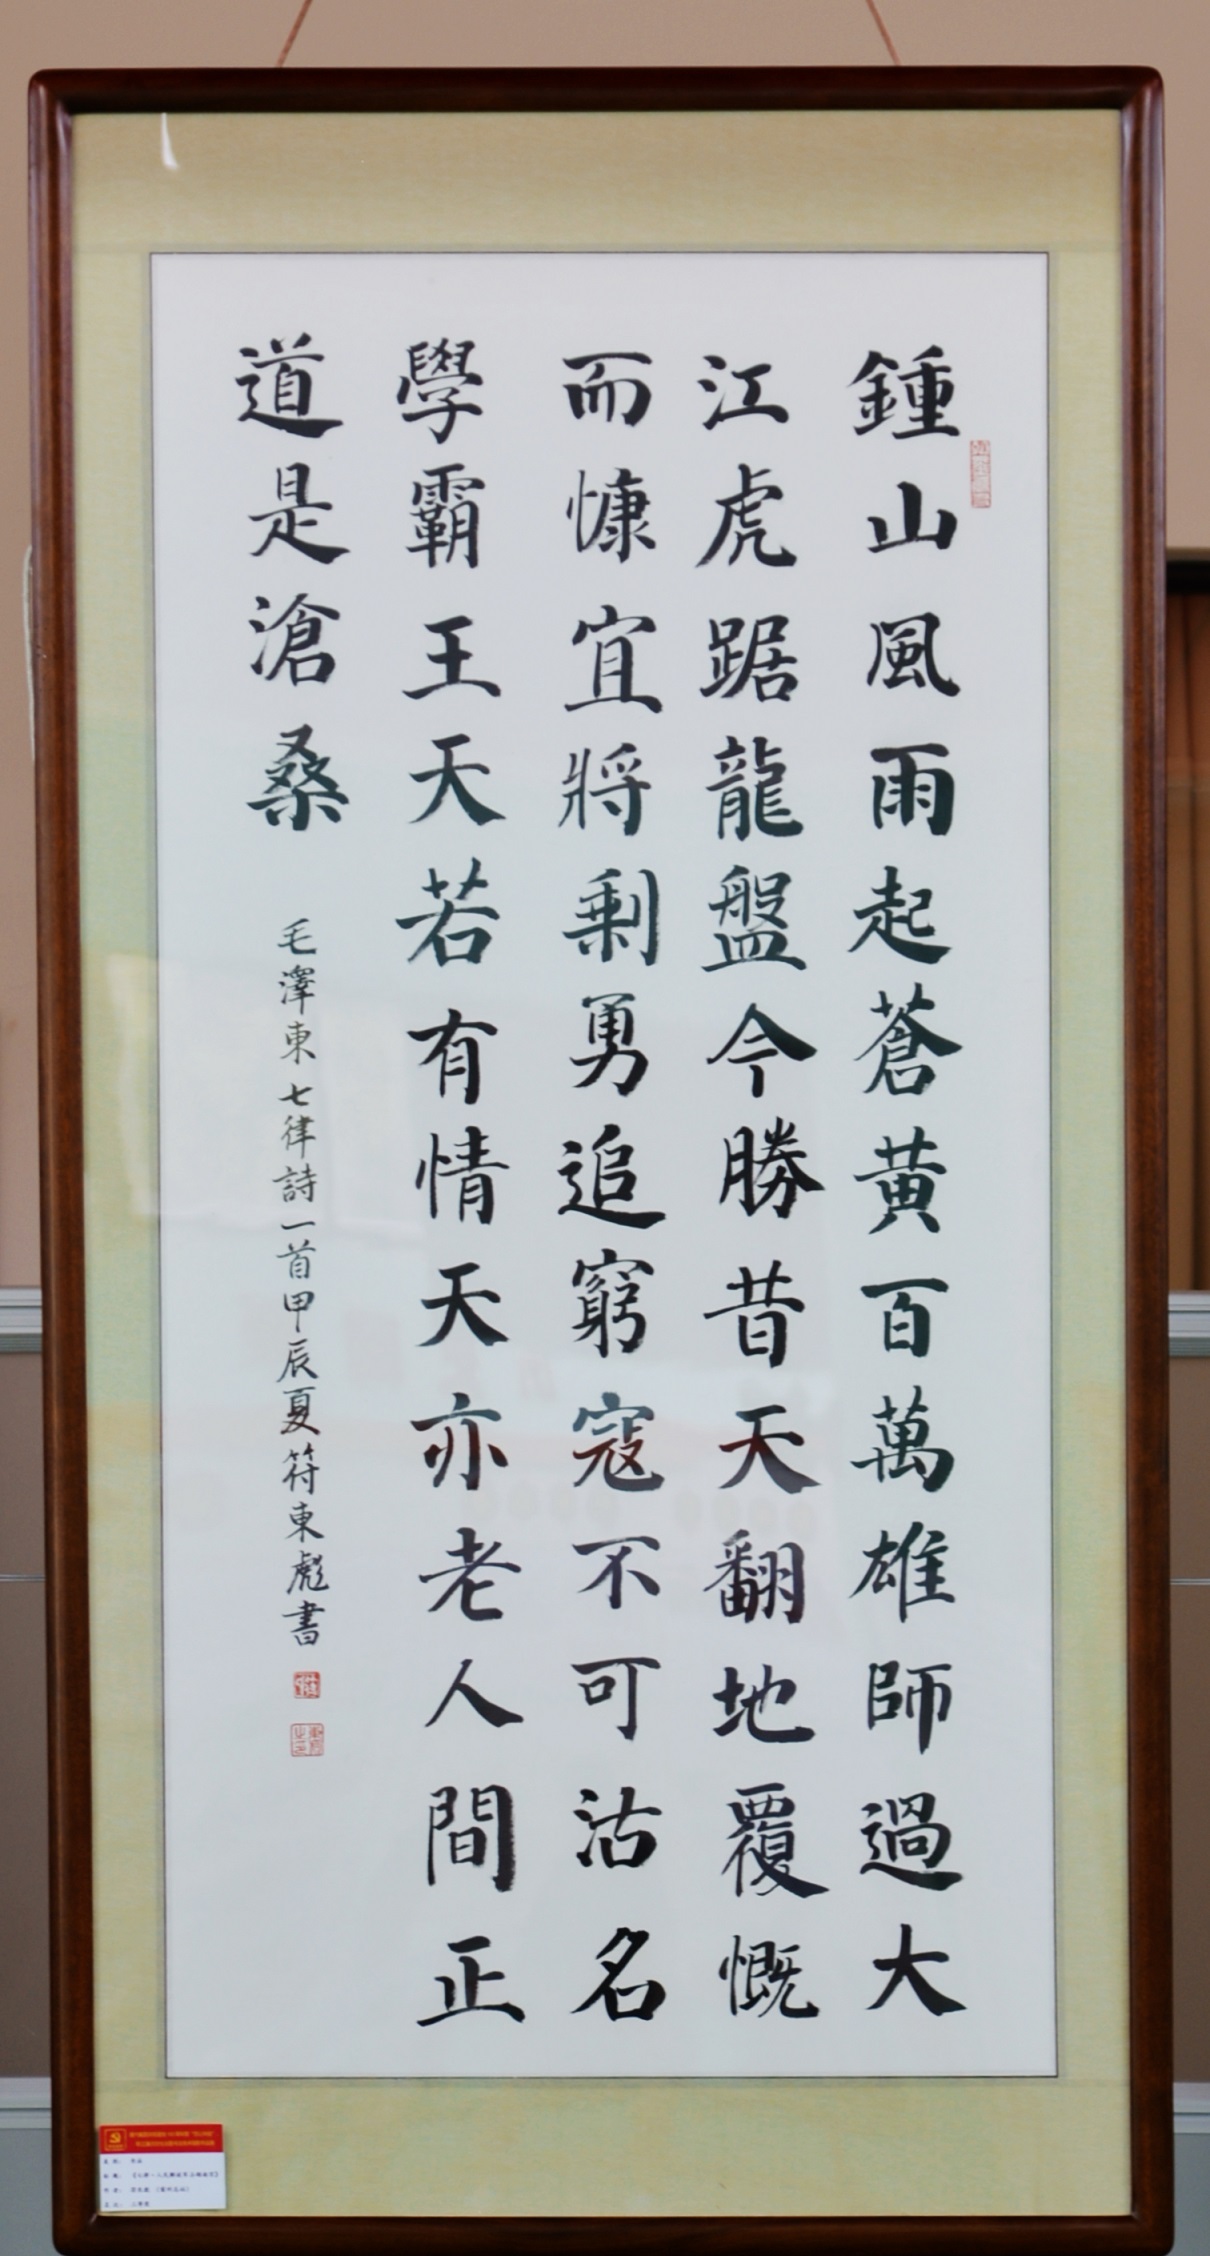 鍾山風雨起蒼黃百萬雄師過大
江虎踞龍盤今勝昔天翻地覆慨
而慷宜將剩勇追窮寇不可沽名
學霸王天若有情天亦老人間正
道是滄桑
毛澤東七律詩一首甲辰夏符東彪書